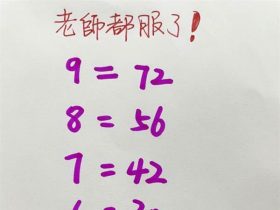 老師都服了!
9 = 72
8 = 56
7 = 42